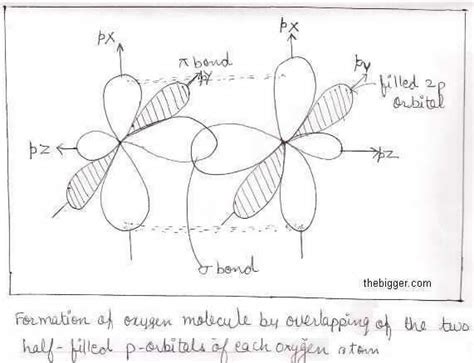 px
px
π bond
py
py
filled 2p
orbital
pz
pz
σ bond
thebigger.com
Formation of oxygen molecule by overlapping of the two
half-filled p-orbitals of each oxygen atom